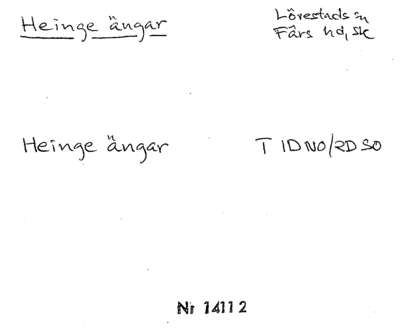 Heinge ängar
Lövestads sn
Färs hd, Sk
Heinge ängar
T 1D NO/2D SO
Nr 14112